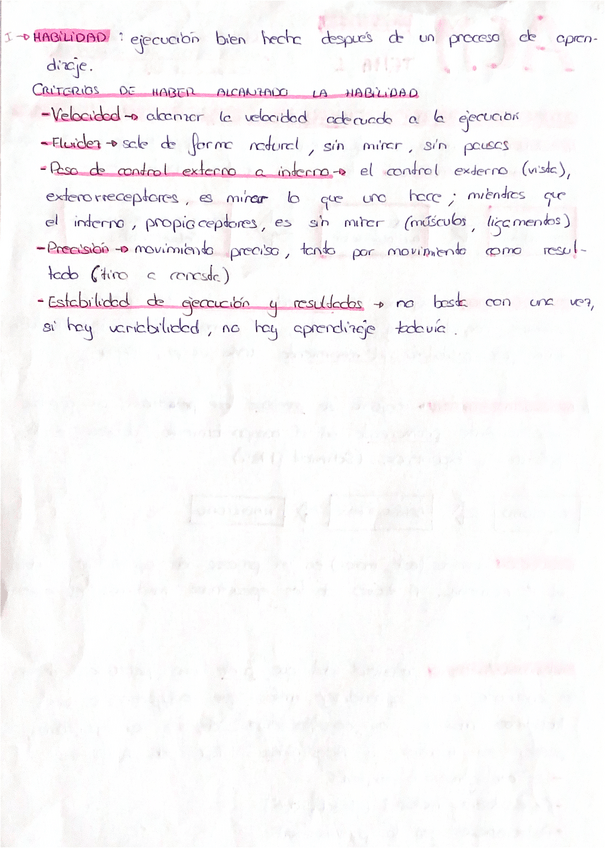 I → HABILIDAD : ejecución bien hecha después de un proceso de apren-
dizaje.
CRITERIOS DE HABER ALCANZADO LA HABILIDAD
- Velocidad → alcanzar la velocidad adecuada a la ejecución
- Fluidez → sale de forma natural, sin mirar, sin pausas
- Paso de control externo a interno → el control externo (vista),
exterorreceptores, es mirar lo que uno hace; mientras que
el interno, propioceptores, es sin mirar (músculos, ligamentos)
- Precisión → movimiento preciso, tanto por movimiento como resul-
tado (tiro a canasta)
- Estabilidad de ejecución y resultados → no basta con una vez,
si hay variabilidad, no hay aprendizaje todavía.